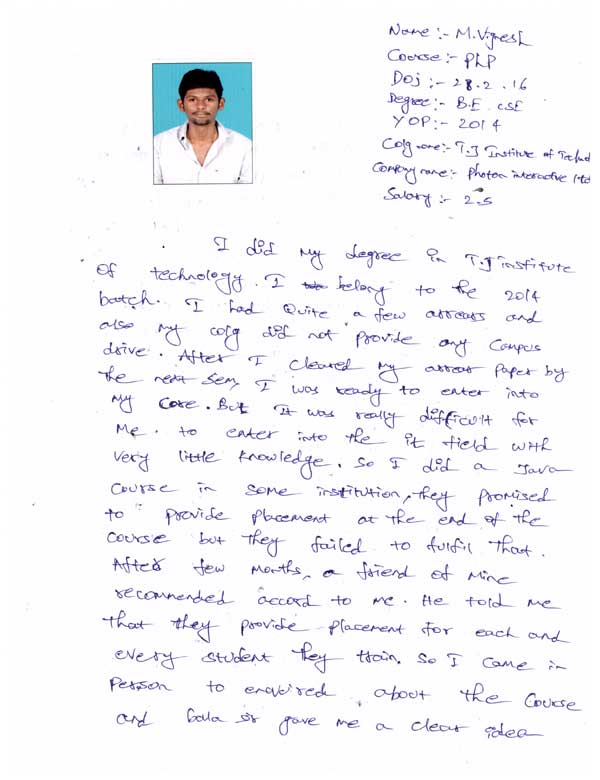 Name :- M.Vignesh
Course :- PLP
DOJ :- 28.2.16
Degree :- B.E. CSE
YOP :- 2014
Colg name :- T.J Institue of Technol
Company name :- Photon interactive ltd
Salary :- 2.5
I did my degree in T.J institute
of technology. I belong to the 2014
batch. I had Quite a few arrears and
also my colg did not provide any Campus
drive. After I cleared my arrear paper by
the next sem, I was ready to enter into
my Core. But It was really difficult for
me. to enter into the it field with
very little knowledge. So I did a Java
course in some institution, they promised
to provide placement at the end of the
course but they failed to fulfil that.
After few months, a friend of mine
recommended accord to me. He told me
that they provide placement for each and
every student they train. So I came in
person to enquired about the course
and bala sir gave me a clear idea